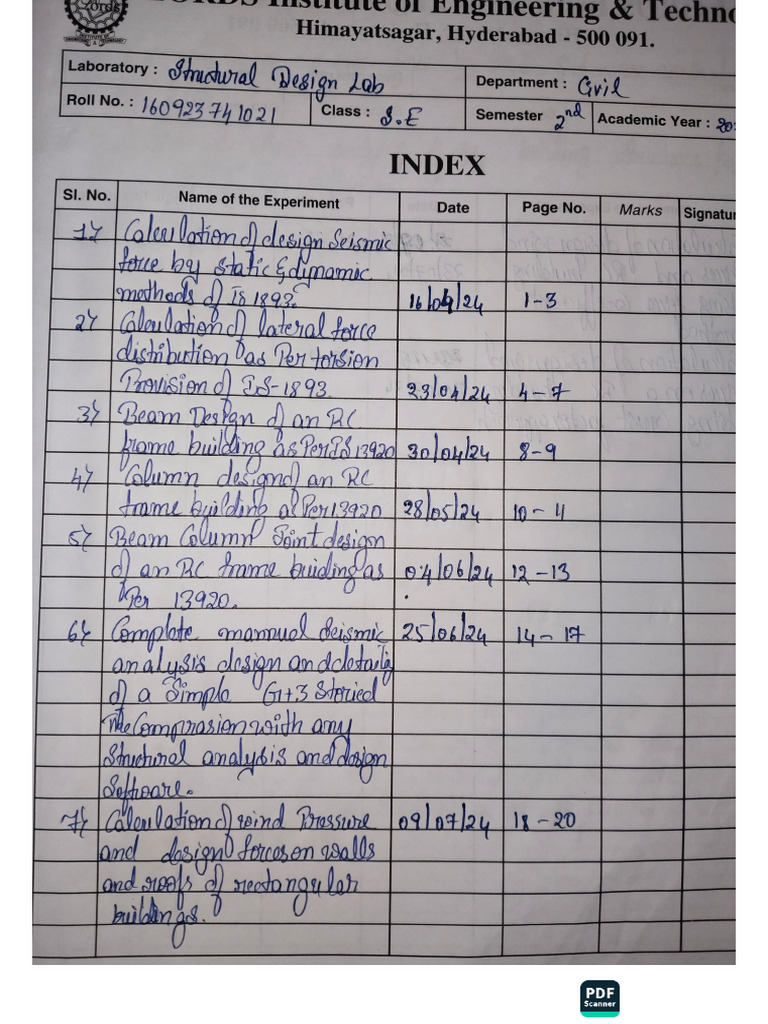 LORDS Institute of Engineering & Techno
Himayatsagar, Hyderabad - 500 091.
Laboratory : Structural Design Lab Department : Civil
Roll No. : 160923741021 Class : S.E Semester 2nd Academic Year : 20
INDEX
Sl. No. Name of the Experiment Date Page No. Marks Signatur
1) Calculation of design Seismic
force by static & dinamic
methods of IS 1893. 16/04/24 1-3
2) Calculation of lateral force
distribution as Per torsion
Provision of IS-1893. 23/04/24 4-7
3) Beam Design of an RC
frame building as Per IS 13920 30/04/24 8-9
4) Column design of an RC
frame building as Per 13920 28/05/24 10-11
5) Beam Column Joint design
of an RC frame buiding as 04/06/24 12-13
Per 13920.
6) Complete mannuel Seismic 25/06/24 14-17
analysis design and detailig
of a Simple G+3 Storied
The Comprasion with any
Structural analysis and design
Software.
7) Calculation of wind Pressure 09/07/24 18-20
and design forces on walls
and roofs of rectangular
buildings.
PDF
Scanner